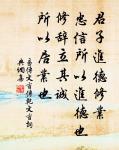 君子進德修業
忠信所以進德也
修辭立其誠
所以居業也
易傳文言傳乾文言詞
典網